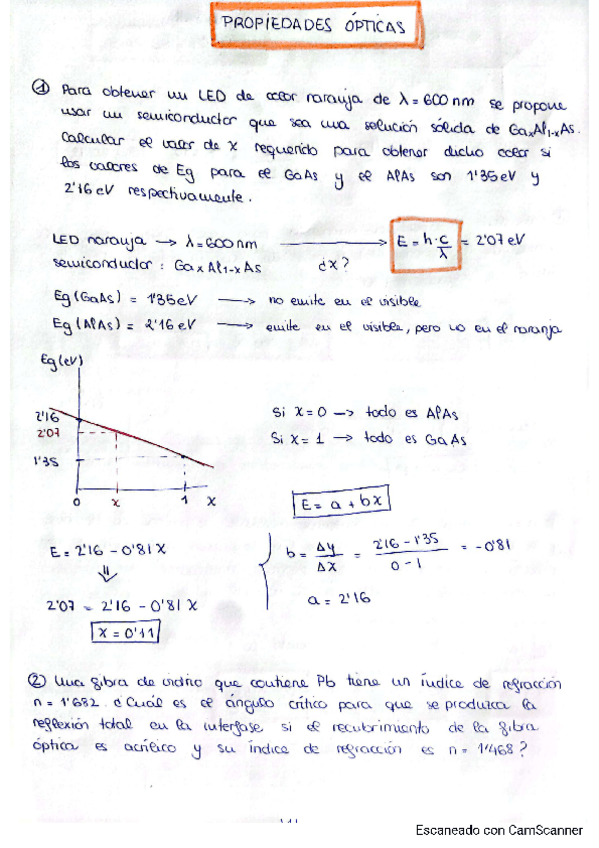 PROPIEDADES ÓPTICAS
① Para obtener un LED de color naranja de λ = 600 nm se propone
usar un semiconductor que sea una solución sólida de GaxAl1-xAs.
Calcular el valor de x requerido para obtener dicho color si
los valores de Eg para el GaAs y el AlAs son 1'35 eV y
2'16 eV respectivamente.
LED naranja → λ = 600 nm → E = h·c/λ = 2'07 eV
semiconductor: GaxAl1-xAs ¿x?
Eg (GaAs) = 1'35 eV → no emite en el visible
Eg (AlAs) = 2'16 eV → emite en el visible, pero no en el naranja
Eg (eV)
2'16
2'07
1'35
0 x 1 X
Si x = 0 → todo es AlAs
Si x = 1 → todo es GaAs
E = a + bx
E = 2'16 - 0'81 X
⇓
2'07 = 2'16 - 0'81 X
X = 0'11
b = Δy/Δx = 2'16 - 1'35 / 0 - 1 = -0'81
a = 2'16
② Una fibra de vidrio que contiene Pb tiene un índice de refracción
n = 1'682. ¿Cuál es el ángulo crítico para que se produzca la
reflexión total en la interfase si el recubrimiento de la fibra
óptica es acrílico y su índice de refracción es n = 1'468?
Escaneado con CamScanner